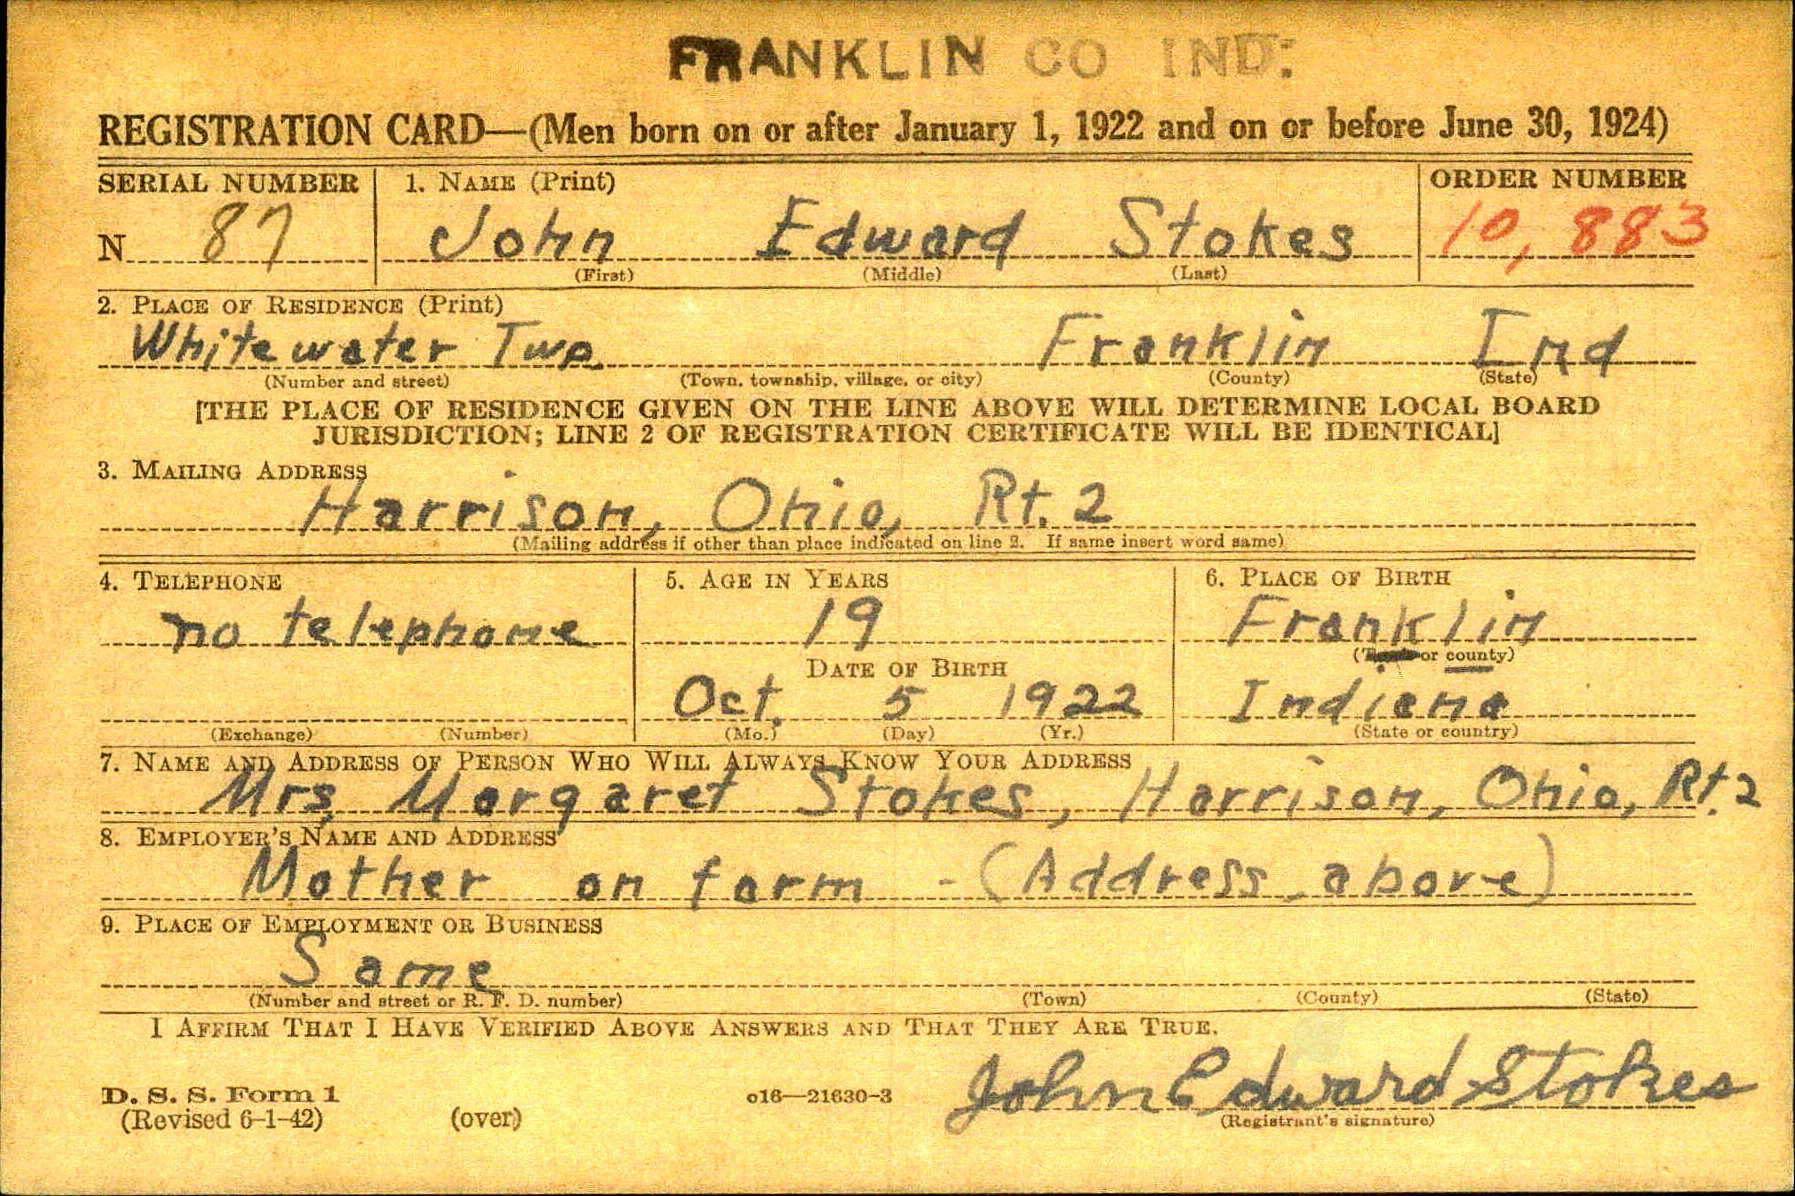 FRANKLIN CO IND.
REGISTRATION CARD—(Men born on or after January 1, 1922 and on or before June 30, 1924)
SERIAL NUMBER 1. NAME (Print) ORDER NUMBER
N 87 John Edward Stokes 10,883
(First) (Middle) (Last)
2. PLACE OF RESIDENCE (Print)
Whitewater Twp. Franklin Ind
(Number and street) (Town, township, village, or city) (County) (State)
[THE PLACE OF RESIDENCE GIVEN ON THE LINE ABOVE WILL DETERMINE LOCAL BOARD
JURISDICTION; LINE 2 OF REGISTRATION CERTIFICATE WILL BE IDENTICAL]
3. MAILING ADDRESS
Harrison, Ohio, Rt. 2
(Mailing address if other than place indicated on line 2. If same insert word same)
4. TELEPHONE 5. AGE IN YEARS 6. PLACE OF BIRTH
no telephone 19 Franklin
(or county)
DATE OF BIRTH
Oct. 5 1922 Indiana
(Exchange) (Number) (Mo.) (Day) (Yr.) (State or country)
7. NAME AND ADDRESS OF PERSON WHO WILL ALWAYS KNOW YOUR ADDRESS
Mrs, Margaret Stokes, Harrison, Ohio, Rt. 2
8. EMPLOYER'S NAME AND ADDRESS
Mother on farm - (Address above)
9. PLACE OF EMPLOYMENT OR BUSINESS
Same
(Number and street or R. F. D. number) (Town) (County) (State)
I AFFIRM THAT I HAVE VERIFIED ABOVE ANSWERS AND THAT THEY ARE TRUE.
John Edward Stokes
D. S. S. Form 1 o16—21630-3
(Revised 6-1-42) (over) (Registrant's signature)